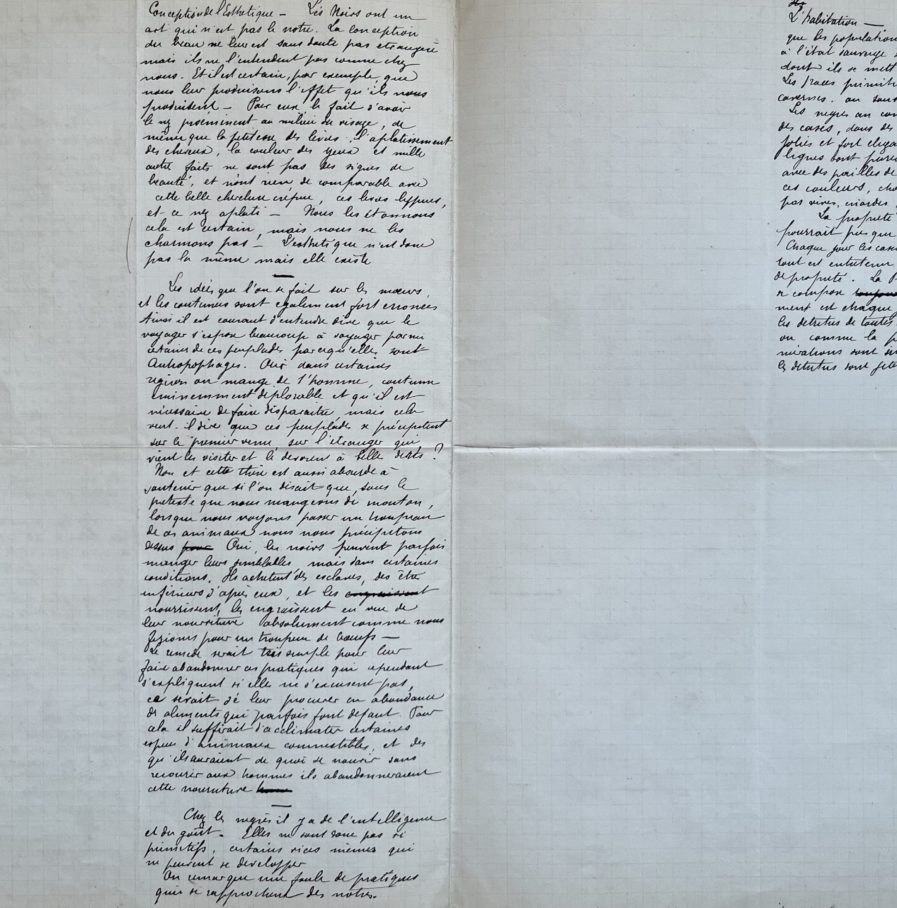 Conception de l'Esthetique — Les Noirs ont un
art qui n'est pas le notre. La conception
du beau ne leur est sans doute pas etrangère
mais ils ne l'entendent pas comme chez
nous. Et il est certain, par exemple que
nous leur produisons l'effet qu'ils nous
produisent — Pour eux le fait d'avoir
le nez proéminent au milieu du visage, de
même que la petitesse des lèvres. l'aplatissement
des cheveux, la couleur des yeux et mille
autre faits ne sont pas des signes de
beauté, et n'ont rien de comparable avec
cette belle chevelure crépue, ces lèvres lippues,
et ce nez aplati — Nous les étonnons
cela est certain, mais nous ne les
charmons pas — L'esthétique n'est donc
pas la même mais elle existe
Les idées que l'on se fait sur les mœurs
et les coutumes sont egalement fort erronées
Ainsi il est courant d'entendre dire que le
voyager s'expose beaucoup à voyager parmi
certaines de ces peuplades parcequ'elles sont
Anthopophages. Oui dans certaines
régions on mange de l'homme, coutume
éminemment déplorable et qu'il est
nécessaire de faire disparaitre, mais cela
veut-il dire que ces peuplades se précipitent
sur le premier venu, sur l'étranger qui
vient les visiter et le devorent à belle dents ?
Non et cette thèse est aussi absurde à
soutenir que si l'on disait que, sous le
pretexte que nous mangeons du mouton,
lorsque nous voyons passer un troupeau
de ces animaux nous nous précipitons
dessus Oui, les noirs peuvent parfois
manger leurs semblables, mais dans certaines
conditions. Ils achetent des esclaves, des être
inférieurs d'après eux, et les engraissent
nourrissent, les engraissent en vue de
leur nourriture absolument comme nous
faisions pour un troupeau de bœufs —
Le remède serait très simple pour leur
faire abandonner ces pratiques qui cependant
s'expliquent si elle ne s'excusent pas,
ce serait de leur procurer en abondance
des aliments qui parfois font defaut. Pour
cela il suffirait d'acclimater certaines
espèces d'animaux commestibles, et dès
qu'ils auraient de quoi se nourrir sans
recourir aux hommes ils abandonneraient
cette nourriture
Chez les negres il y a de l'intelligence
et du goût — Elles ne sont donc pas si
primitifs, certains vices mêmes qui
ne peuvent se developper
On remarque une foule de pratiques
qui se rapprochent des nôtres.
L'habitation —
que les population
à l'état sauvage
dont ils se mett
Les races primiti
cavernes. ou sous
Les negres au con
des cases, dans des
jolies et fort eléga
avec des pailles de
ces couleurs, cho
pas vives, criardes,
La propreté
pourrait pas que
Chaque jour les cases
tout est entretenu
de propreté. La
se compose
ment et chaque
les detritus de toutes
ou comme la p
les detritus sont jete